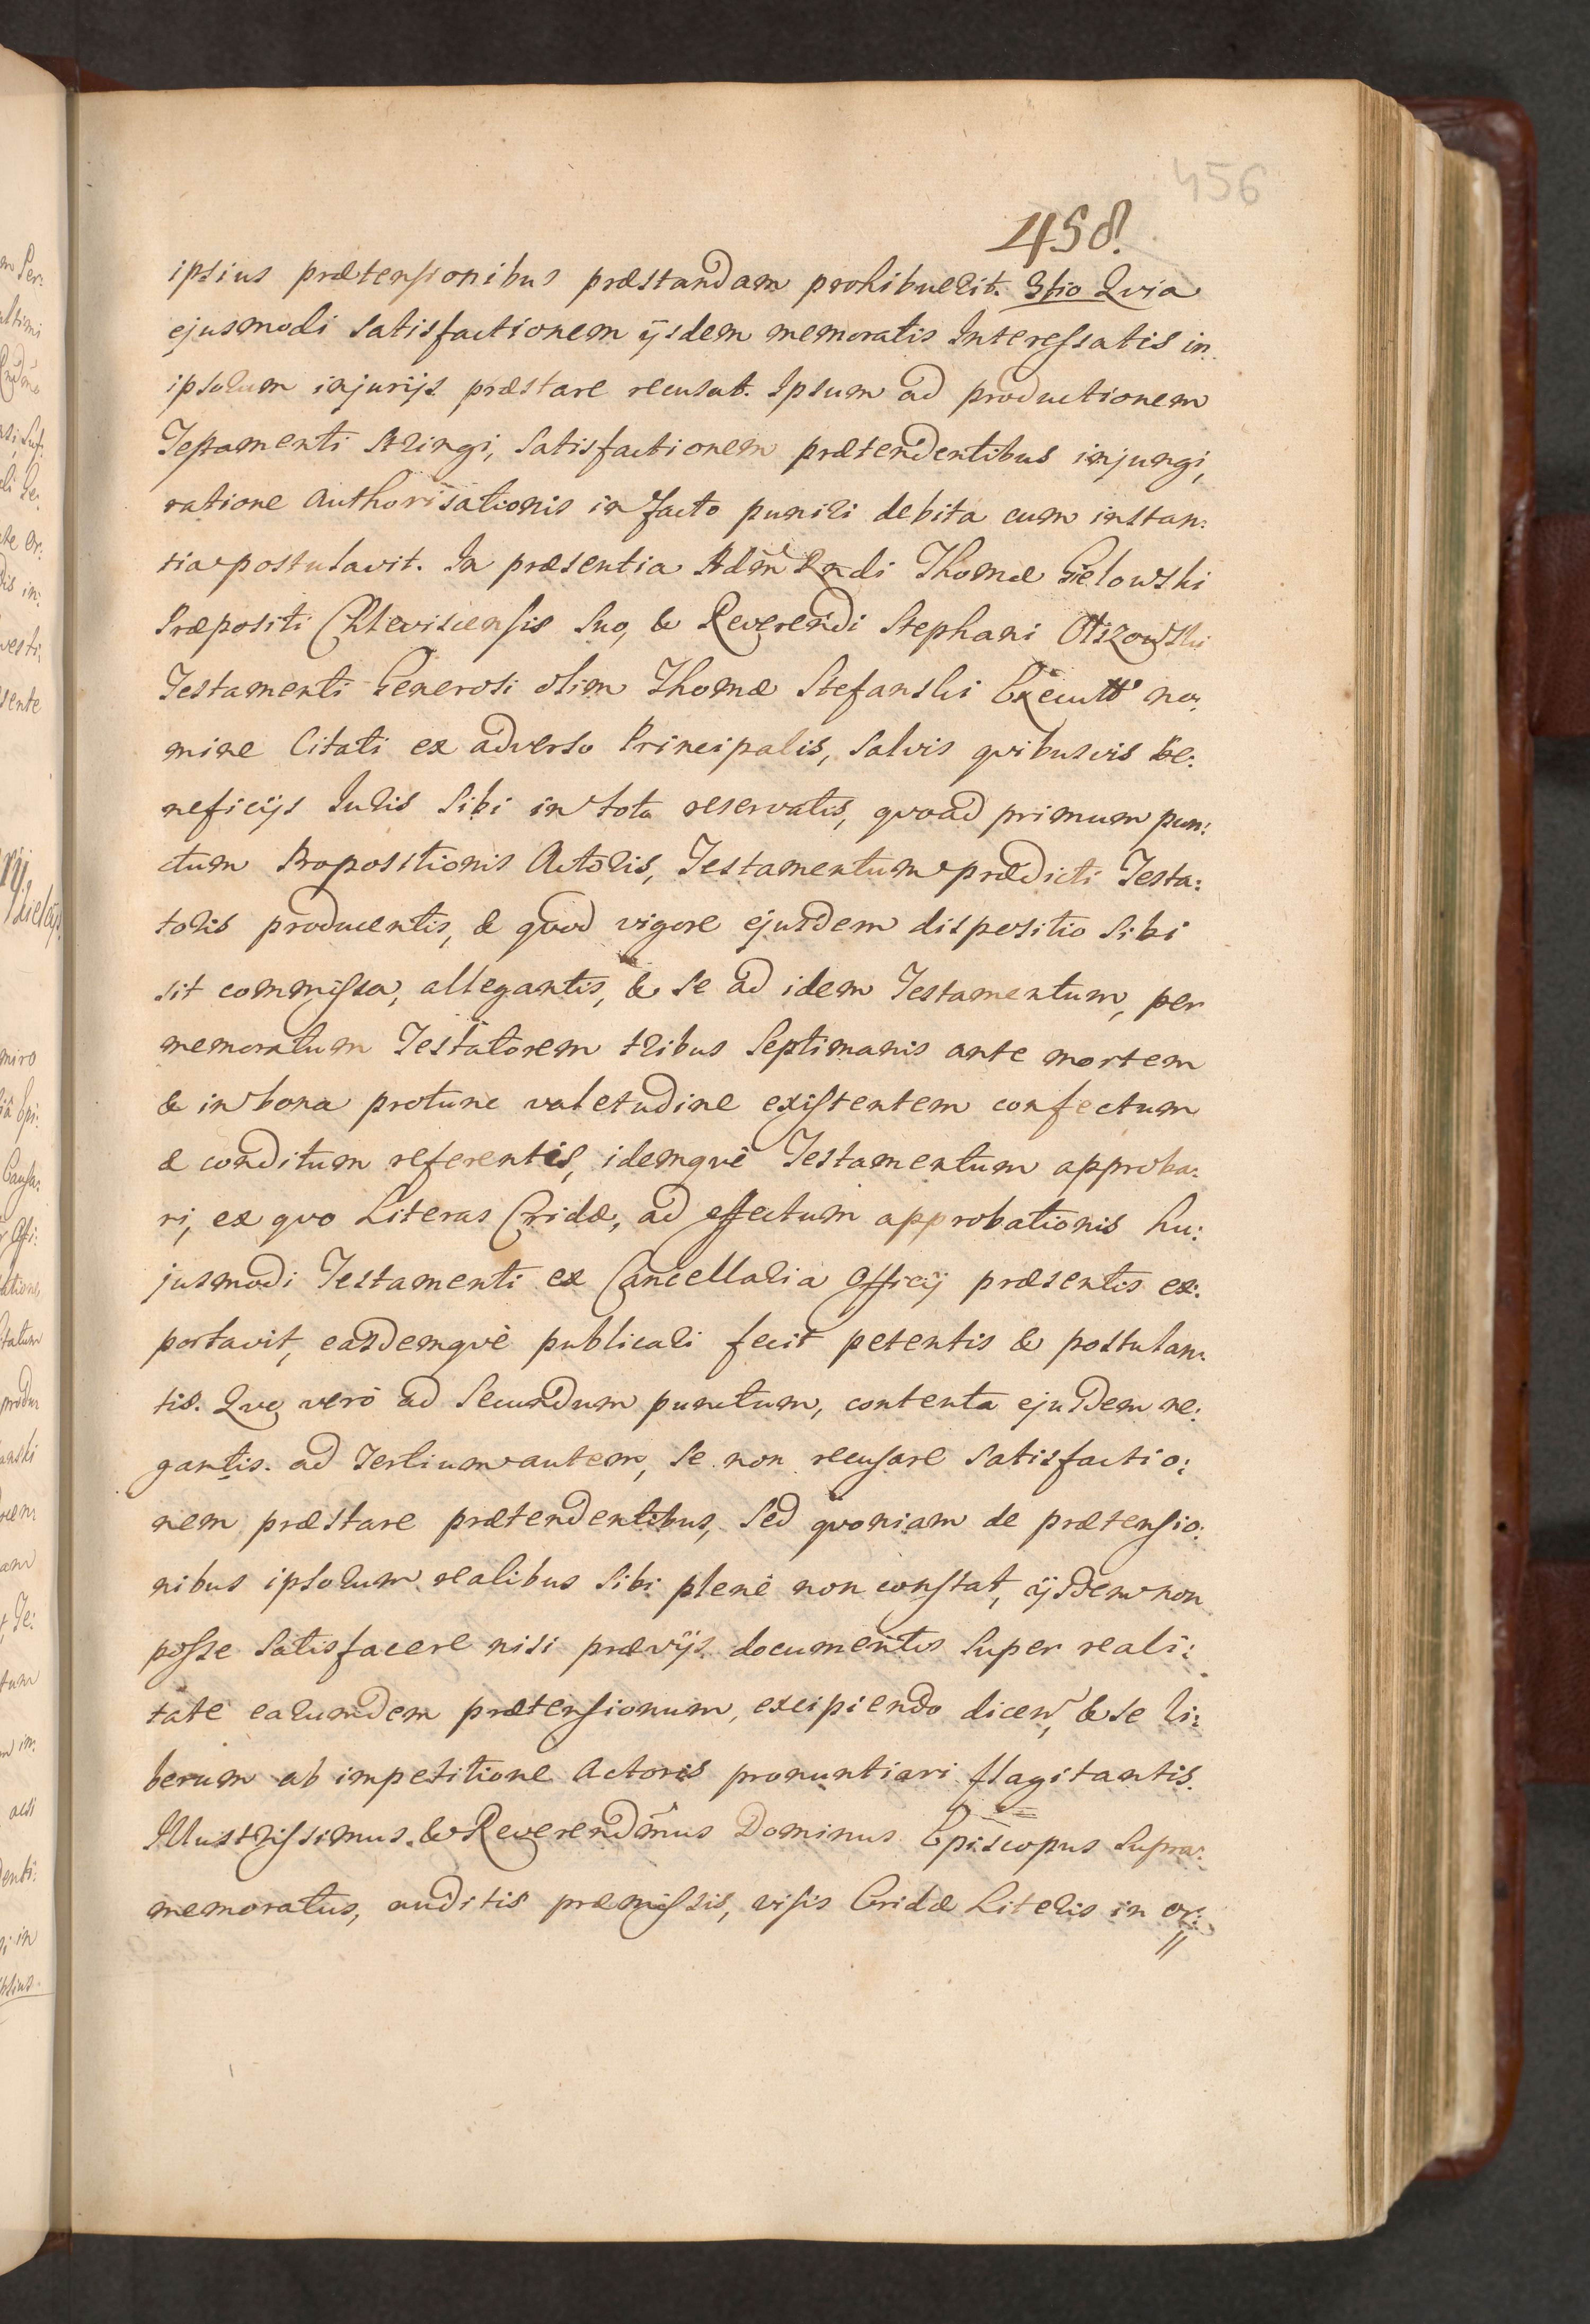 456
458.
ipsius prætensionibus præstandam prohibuerit. 3tio Qvia
ejusmodi satisfactionem ijsdem memoratis Interessatis in
ipsorum injurijs præstare recusat. Ipsum ad productionem
Testamenti stringi, satisfactionem prætendentibus injungi,
ratione authorisationis in facto puniri debita cum instan:
tia postulavit. In præsentia Adm̃ Rndi Thomæ Gielowski
Præpositi Chlevisciensis suo, & Reverendi Stephani Olszowski
Testamenti Generosi olim Thomæ Stefanski no:
mine Citati ex adverso Principalis, salvis qvibusvis be:
neficijs Iuris sibi in toto reservatis, qvoad primum pun:
ctum Propositionis Actoris, Testamentum prædicti Testa:
toris producentis, & qvod vigore ejusdem dispositio sibi
sit commissa, allegantis, & se ad idem Testamentum, per
memoratum Testatorem tribus septimanis ante mortem
& in bona protunc valetudine existentem confectum
& conditum referentis, idemqvè Testamentum approba:
ri, ex qvo Literas Cridæ, ad effectum approbationis hu:
jusmodi Testamenti ex Cancellaria Officij præsentis ex:
portavit, easdemqvè publicari fecit petentis & postulan:
tis. Qvo verò ad secundum punctum, contenta ejusdem ne:
gantis. ad tertium autem, se non recusare satisfactio:
nem præstare prætendentibus, sed qvoniam de prætensio:
nibus ipsorum realibus sibi plenè non constat, ijsdem non
posse satisfacere nisi prævijs documentis super reali:
tate earumdem prætensionum, excipiendo dicen, & se li:
berum ab impetitione Actoris pronuntiari flagitantis.
Illustrissimus & Reverendm̃us Dominus Episcopus supra:
memoratus, auditis præmissis, visis Cridæ Literis in or: